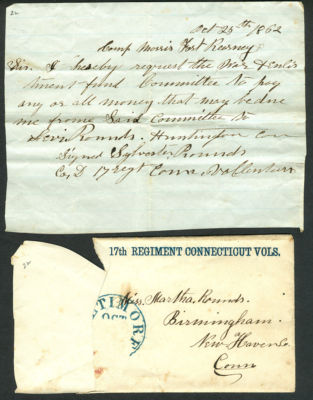 Oct 25th 1862
Camp Morris Fort Kearney
Sir. I hereby request the War & Enlis
tment fund Committee to pay
any or all money that may be due
me frome Said Committee to
Levi Rounds. Huntington Con
Signed Sylvester Rounds
Co, D 17 regt Conn
17th REGIMENT CONNECTICUT VOLS.
TIMORE
OCT
Miss. Martha Rounds.
Birmingham.
New Haven Co
Conn